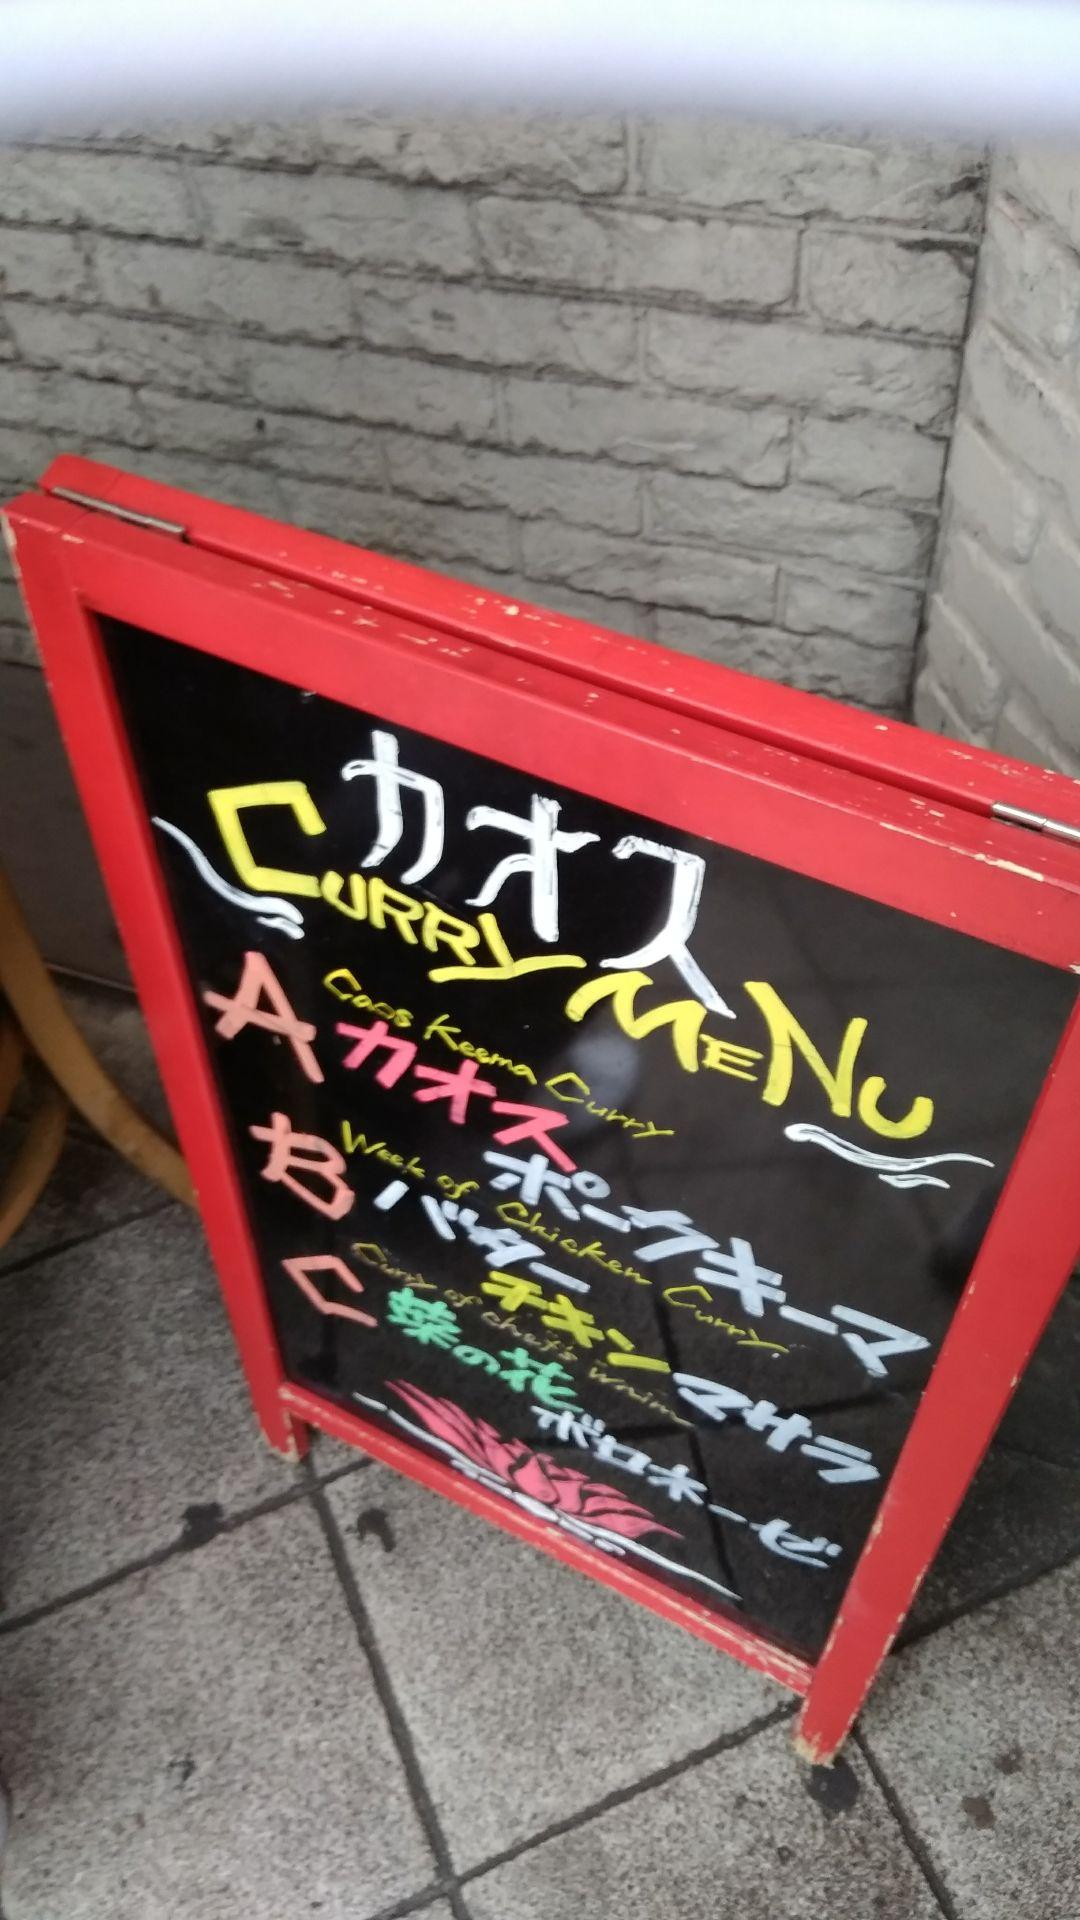 カオス
CURRY MENU
A Caos Keema Curry
カオス ポークキーマ
B Week of Chicken Curry.
バター チキン マサラ
C Curry of chef's
菜の花 ボロネーゼ